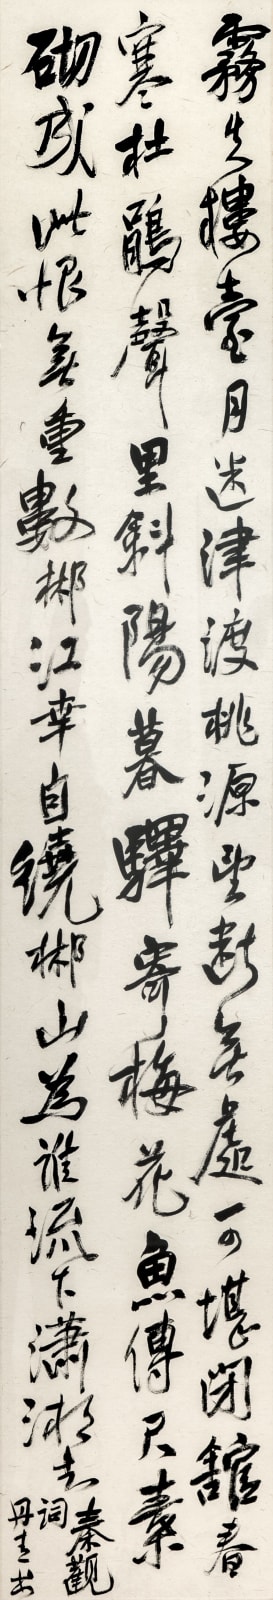 霧失樓臺月迷津渡桃源望斷無處可堪閉館春
寒杜鵑聲里斜陽暮驛寄梅花魚傳尺素
砌成此恨無重數郴江幸自繞郴山為誰流下瀟湘去
秦觀
詞
丹青